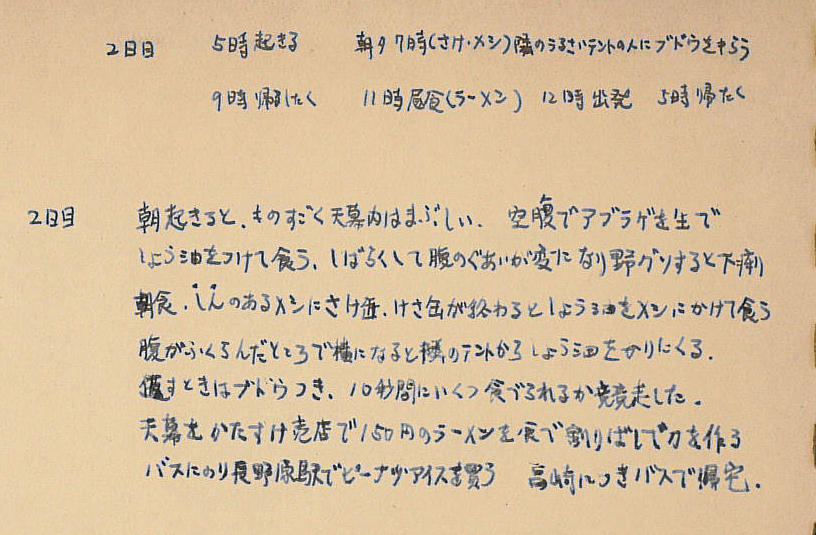 2日目 5時起きる 朝夕7時(さけ・メシ)隣のうるさいテントの人にブドウをもらう
9時帰したく 11時昼食(ラーメン) 12時出発 5時帰たく
2日目 朝起きると、ものすごく天幕内はまぶしい、空腹でアブラゲを生で
しょう油をつけて食う、しばらくして腹のぐあいが変になり野グソすると下痢
朝食、しんのあるメシにさけ缶、けさ缶が終わるとしょう油をメシにかけて食う
腹がふくらんだところで横になると隣のテントからしょう油をかりにくる、
返すときはブドウつき、10秒間にいくつ食べられるか競走した。
天幕をかたずけ売店で150円のラーメンを食べ割りばしで刀を作る
バスにのり長野原駅でピーナツアイスを買う 高崎につきバスで帰宅.